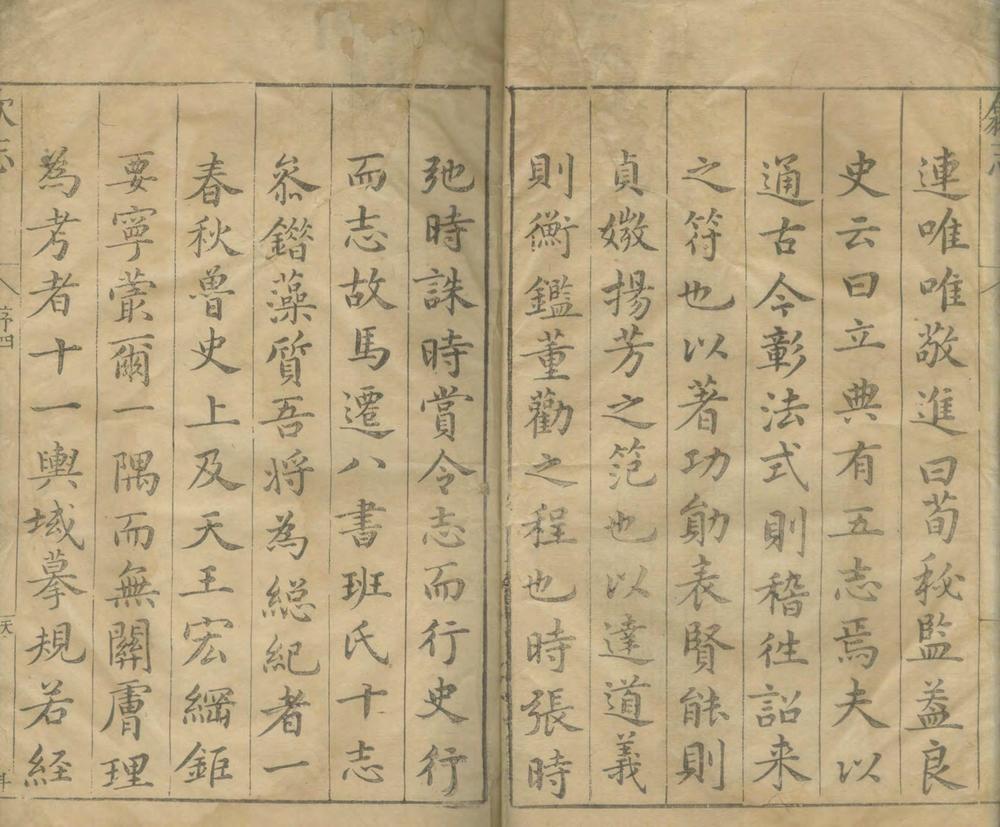 連唯唯敬進曰荀秘監益良
史云曰立典有五志焉夫以
通古今彰法式則稽徃詔来
之符也以著功勛表賢能則
貞媺揚芳之范也以達道義
則衡鑑董勸之程也時張時
弛時誅時賞令志而行史行
而志故馬遷八書班氏十志
叅鐕藻質吾将為縂紀者一
春秋魯史上及天王宏綱鉅
要寧蕞爾一隅而無關膚理
為考者十一輿域摹規若経
序四